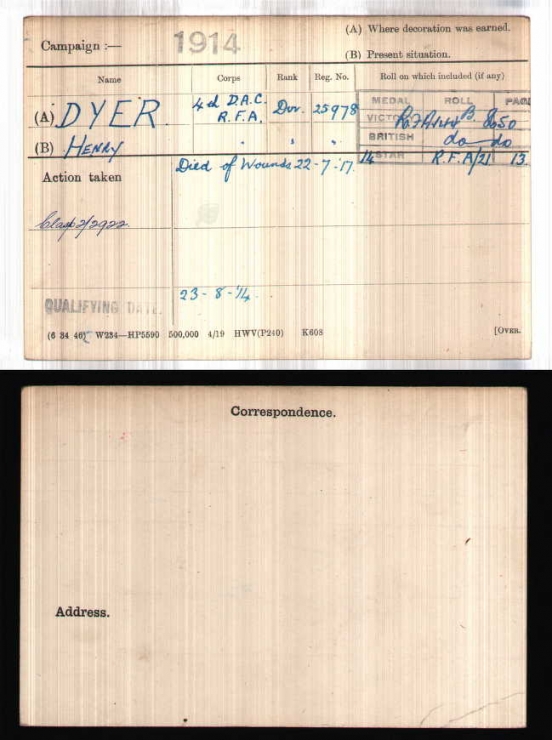 (A) Where decoration was earned.
Campaign :— 1914
(B) Present situation.
Name Corps Rank Reg. No. Roll on which included (if any)
MEDAL ROLL PAGE
(A) DYER. 4d D.A.C. Dvr. 25978 VICTORY B 8650
R.F.A.
BRITISH do do
(B) HENRY " " " 14 STAR R.F.A/21 13.
Action taken Died of Wounds 22-7-17.
Clasp 2/2922.
QUALIFYING DATE. 23-8-14.
(6 34 46) W234—HP5590 500,000 4/19 HWV(P240) K608 [OVER.
Correspondence.
Address.